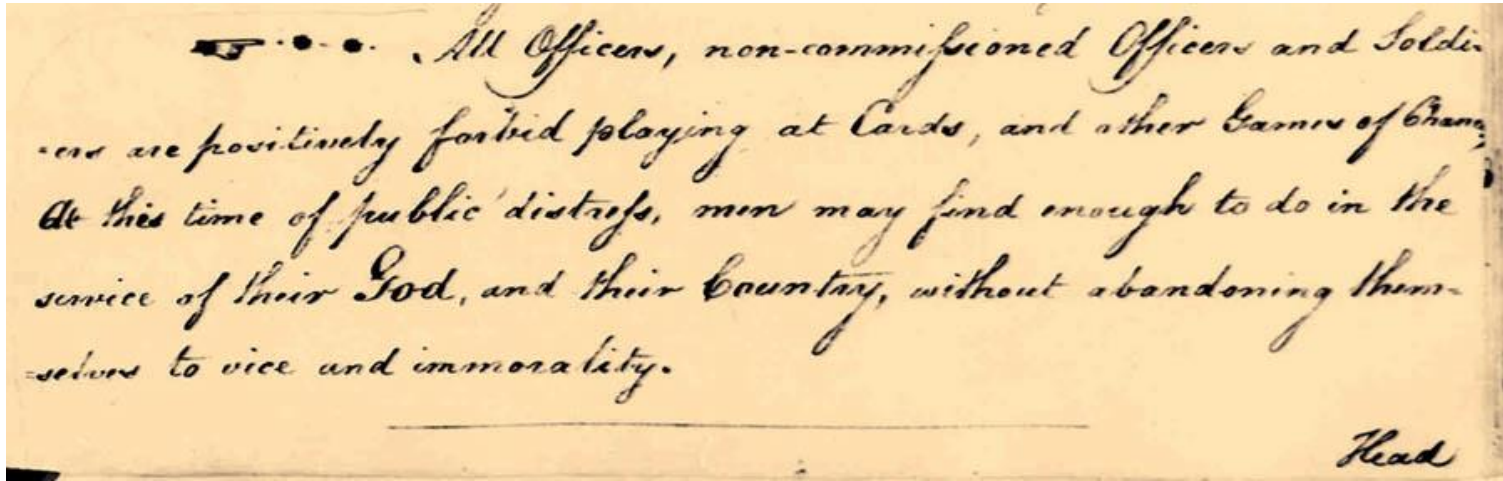 All Officers, non-commiſsioned Officers and Soldi-
-ers are positively forbid playing at Cards, and other Games of Chanc
At this time of public distreſs, men may find enough to do in the
service of their God, and their Country, without abandoning them-
-selves to vice and immorality.
Head